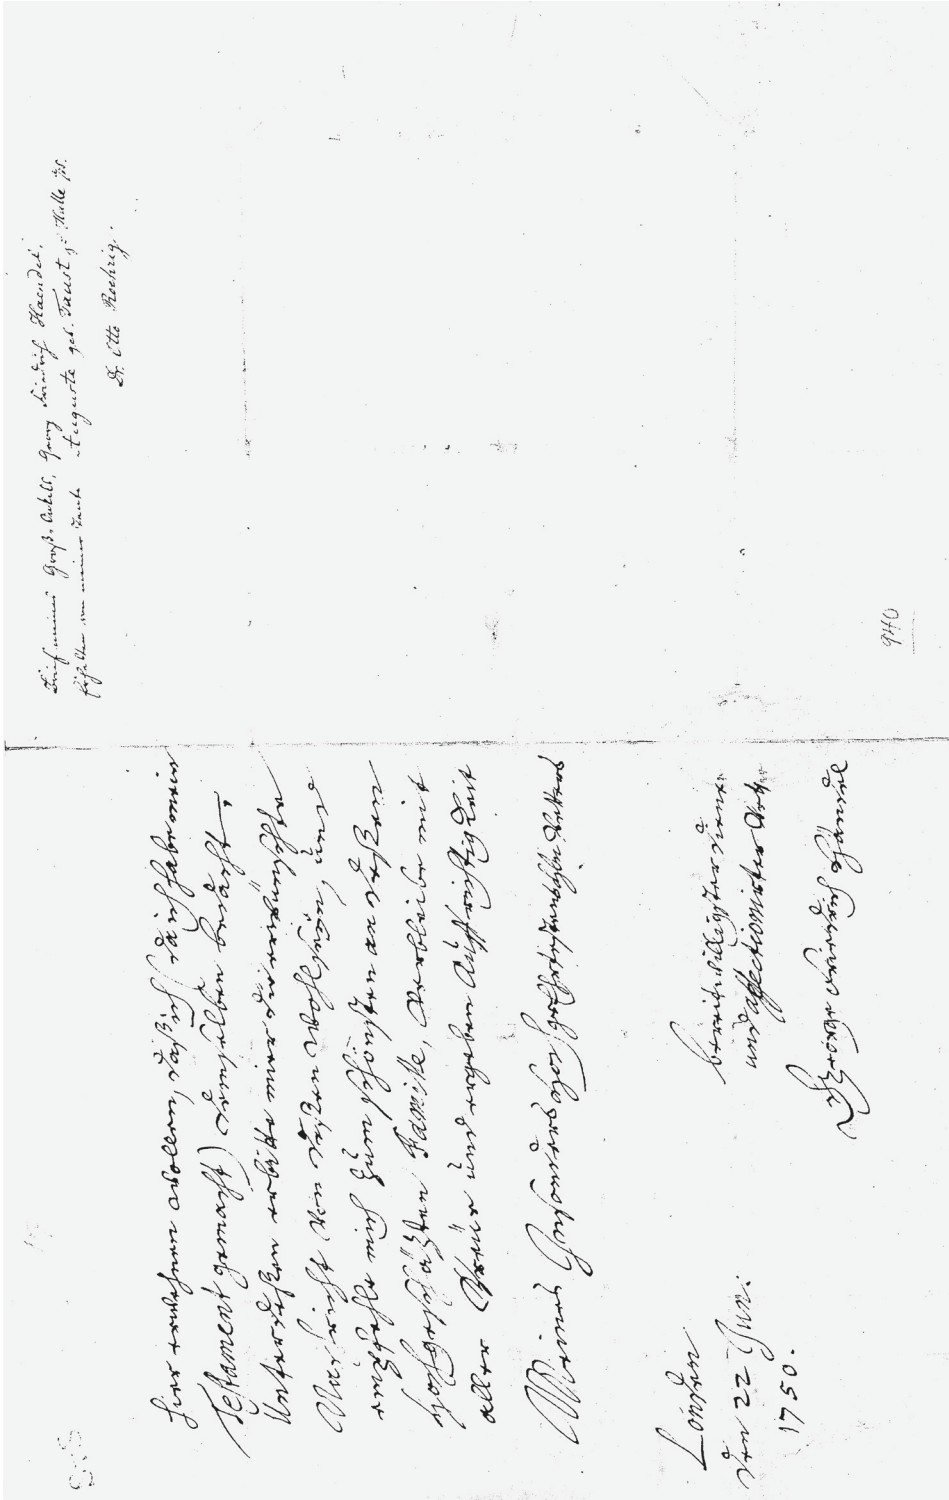 hier erwehnen wollen, daß ich (da ich habe mein
Testament gemacht) demselben bedacht.
Unterdeßen erbitte mier die erwünschte
Nachricht von deßen Wohlseÿn, und
empfehle mich zum schönsten an deßen
Hochgeschätzten Familie, verbleibe mit
aller Treüe und ergeben Auffrichtigkeit
Meines Insonders HochgeEhrtesten
London
den 22 Jun:
1750.
bereitwilligster diener
und affectionirter Vetter
George Friedrich Händel
Brief meines Groß-Onkels, Georg Friedrich Haendel,
Erhalten von meiner Tante Auguste geb. Faust, z. Halle
Dr. Otto Roehrig.
940